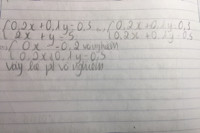 {0,2x+0,1y=0,3 {0,2x+0,1y=0,3
{2x + y=5 {0,2x+0,1y=0,5
{0x =-0,2 vô nghiệm
{0,2x+0,1y=0,5
Vậy hệ pt vô nghiệm